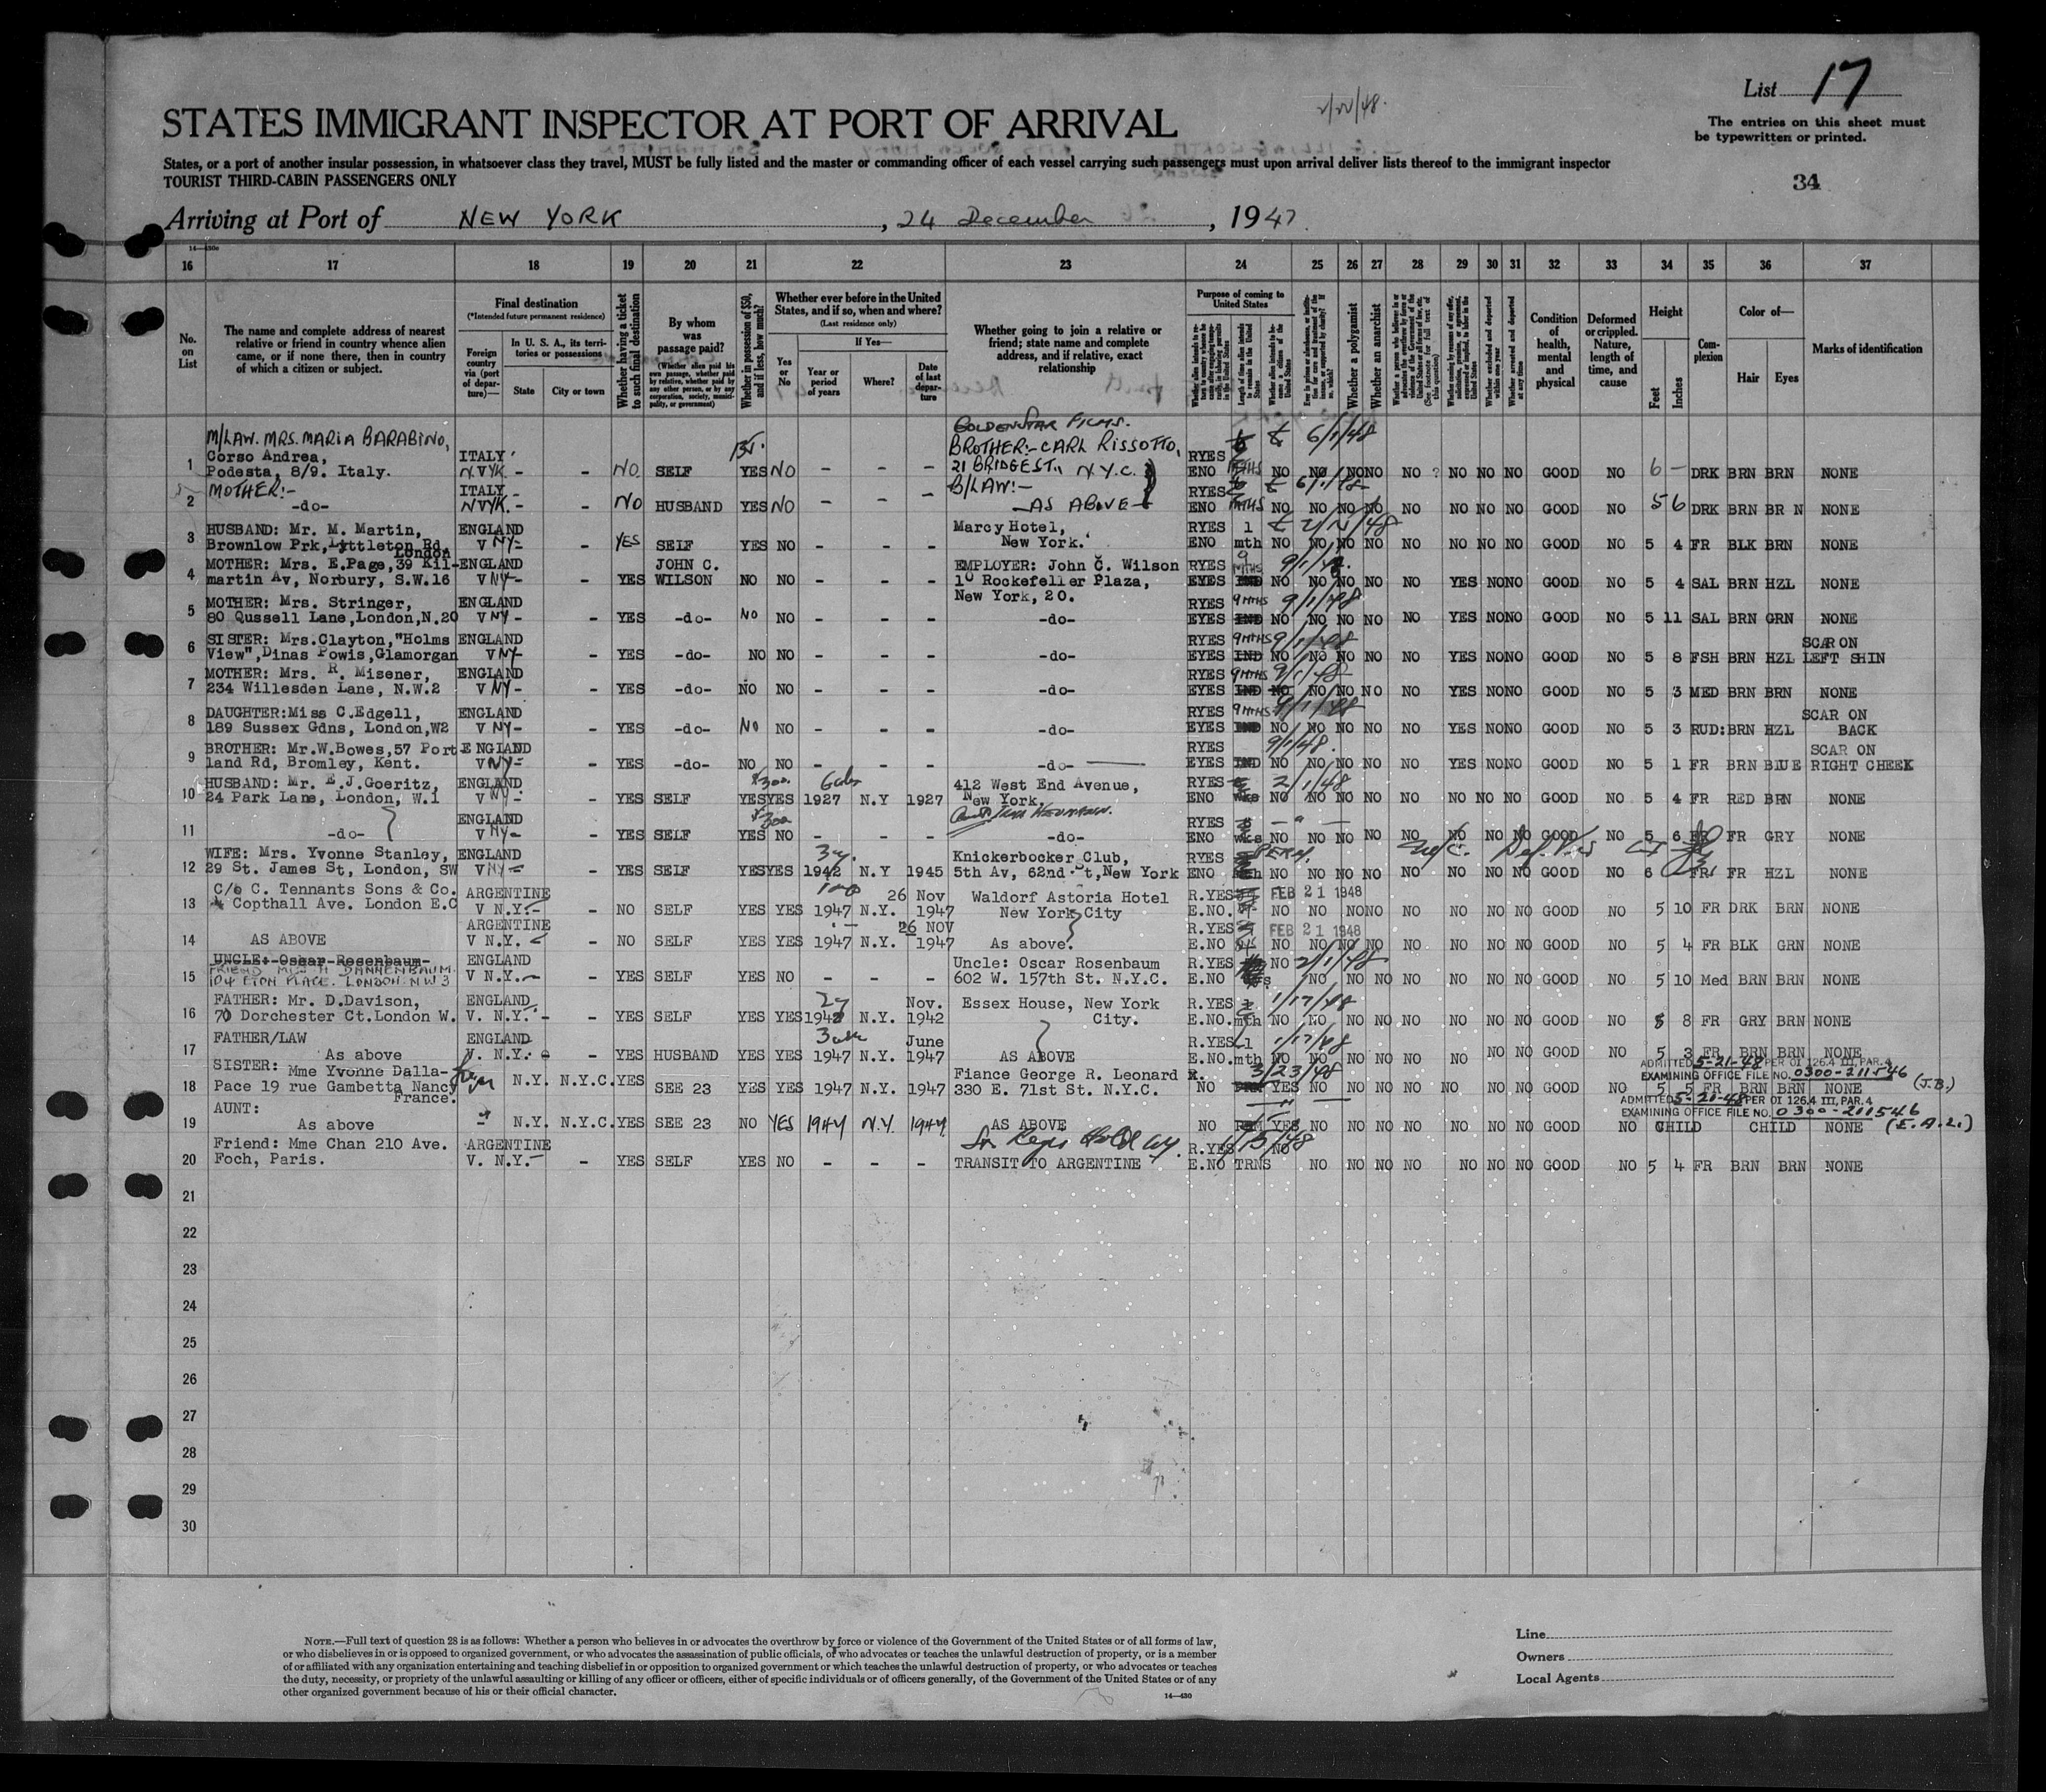 List 17
2/20/48.
STATES IMMIGRANT INSPECTOR AT PORT OF ARRIVAL
The entries on this sheet must
be typewritten or printed.
States, or a port of another insular possession, in whatsoever class they travel, MUST be fully listed and the master or commanding officer of each vessel carrying such passengers must upon arrival deliver lists thereof to the immigrant inspector
TOURIST THIRD-CABIN PASSENGERS ONLY
34
Arriving at Port of NEW YORK, 24 December, 1947
14—430c
16 17 18 19 20 21 22 23 24 25 26 27 28 29 30 31 32 33 34 35 36 37
No. on List
The name and complete address of nearest relative or friend in country whence alien came, or if none there, then in country of which a citizen or subject.
Final destination
(*Intended future permanent residence)
Foreign country via (port of departure)—
In U. S. A., its territories or possessions
State
City or town
Whether having a ticket to such final destination
By whom was passage paid?
(Whether alien paid his own passage, whether paid by relative, whether paid by any other person, or by any corporation, society, municipality, or government)
Whether in possession of $50, and if less, how much?
Whether ever before in the United States, and if so, when and where?
(Last residence only)
Yes or No
If Yes—
Year or period of years
Where?
Date of last departure
Whether going to join a relative or friend; state name and complete address, and if relative, exact relationship
Purpose of coming to United States
Length of time alien intends to remain in the United States
Whether alien intends to become a citizen of the United States
Whether a polygamist
Whether an anarchist
Whether excluded and deported within one year
Whether arrested and deported at any time
Condition of health, mental and physical
Deformed or crippled. Nature, length of time, and cause
Height
Feet
Inches
Complexion
Color of—
Hair
Eyes
Marks of identification
GOLDENSTAR FILMS.
M/LAW. MRS. MARIA BARABINO, 6/1/48
Corso Andrea, ITALY BROTHER:- CARL RISSOTTO, RYES
1 Podesta, 8/9. Italy. NVYK - - NO SELF YES NO - - - 21 BRIDGE ST., N.Y.C. ENO MTHS NO NO NO NO NO ? NO NO NO GOOD NO 6 - DRK BRN BRN NONE
MOTHER:- ITALY B/LAW:- RYES 6/1/48
2 -do- NVYK. - NO HUSBAND YES NO - - - AS ABOVE ENO MTHS NO NO NO NO NO NO NO NO GOOD NO 5 6 DRK BRN BR N NONE
HUSBAND: Mr. M. Martin, ENGLAND Marcy Hotel, RYES 1
3 Brownlow Prk, Lyttleton Rd. London V NY- - YES SELF YES NO - - - New York. ENO mth NO NO NO NO NO NO NO NO GOOD NO 5 4 FR BLK BRN NONE
MOTHER: Mrs. E.Page, 39 Kil- ENGLAND JOHN C. EMPLOYER: John C. Wilson RYES 9 MTHS
4 martin Av, Norbury, S.W.16 V NY- - YES WILSON NO NO - - - 10 Rockefeller Plaza, EYES IND NO NO NO NO NO YES NO NO GOOD NO 5 4 SAL BRN HZL NONE
New York, 20.
MOTHER: Mrs. Stringer, ENGLAND RYES 9 MTHS 9/1/48
5 80 Qussell Lane, London, N.20 V NY- - YES -do- NO NO - - - -do- EYES IND NO NO NO NO NO YES NO NO GOOD NO 5 11 SAL BRN GRN NONE
SISTER: Mrs.Clayton,"Holms ENGLAND RYES 9 MTHS 9/1/48 SCAR ON
6 View", Dinas Powis, Glamorgan V NY- - YES -do- NO NO - - - -do- EYES IND NO NO NO NO NO YES NO NO GOOD NO 5 8 FSH BRN HZL LEFT SHIN
MOTHER: Mrs. R. Misener, ENGLAND RYES 9 MTHS 9/1/48
7 234 Willesden Lane, N.W.2 V NY- - YES -do- NO NO - - - -do- EYES IND NO NO NO NO NO YES NO NO GOOD NO 5 3 MED BRN BRN NONE
DAUGHTER:Miss C.Edgell, ENGLAND RYES 9 MTHS 9/1/48 SCAR ON
8 189 Sussex Gdns, London, W2 V NY- - YES -do- NO NO - - - -do- EYES IND NO NO NO NO NO YES NO NO GOOD NO 5 3 RUD: BRN HZL BACK
BROTHER: Mr.W.Bowes, 57 Port- ENGLAND RYES 9/1/48. SCAR ON
9 land Rd, Bromley, Kent. V NY- - YES -do- NO NO - - - -do- EYES IND NO NO NO NO NO YES NO NO GOOD NO 5 1 FR BRN BLUE RIGHT CHEEK
HUSBAND: Mr. E.J.Goeritz, ENGLAND $300 412 West End Avenue, RYES 2/1/48
10 24 Park Lane, London, W.1 V NY- - YES SELF YES YES 1927 N.Y 1927 New York. ENO wks NO NO NO NO NO NO NO NO GOOD NO 5 4 FR RED BRN NONE
ENGLAND RYES
11 -do- V NY- - YES SELF YES NO - - - -do- ENO wks NO NO NO NO NO NO NO NO GOOD NO 5 6 FR FR GRY NONE
WIFE: Mrs. Yvonne Stanley, ENGLAND Knickerbocker Club, RYES
12 29 St. James St, London, SW V NY- - YES SELF YES YES 1942 N.Y 1945 5th Av, 62nd St, New York ENO mth NO NO NO NO NO NO NO NO GOOD NO 6 FR FR HZL NONE
C/o C. Tennants Sons & Co. ARGENTINE 26 Nov Waldorf Astoria Hotel R.YES FEB 21 1948
13 Copthall Ave. London E.C V N.Y.- - NO SELF YES YES 1947 N.Y. 1947 New York City E.NO. NO NO NO NO NO NO NO NO GOOD NO 5 10 FR DRK BRN NONE
ARGENTINE 26 NOV R.YES FEB 21 1948
14 AS ABOVE V N.Y. - NO SELF YES YES 1947 N.Y. 1947 As above. E.NO NO NO NO NO NO NO NO NO GOOD NO 5 4 FR BLK GRN NONE
UNCLE: Oscar Rosenbaum ENGLAND Uncle: Oscar Rosenbaum R.YES NO 2/1/48
FRIEND MISS H DANNENBAUM
15 104 ETON PLACE. LONDON NW3 V N.Y.- - YES SELF YES NO - - - 602 W. 157th St. N.Y.C. E.NO NO NO NO NO NO NO NO GOOD NO 5 10 Med BRN BRN NONE
FATHER: Mr. D.Davison, ENGLAND Nov. Essex House, New York R.YES 1/17/48
16 70 Dorchester Ct.London W. V. N.Y. - - YES SELF YES YES 1942 N.Y. 1942 City. E.NO. mth NO NO NO NO NO NO NO NO GOOD NO 5 8 FR GRY BRN NONE
FATHER/LAW ENGLAND June R.YES 1 1/17/48
17 As above V. N.Y. - YES HUSBAND YES YES 1947 N.Y. 1947 AS ABOVE E.NO. mth NO NO NO NO NO NO NO NO GOOD NO 5 3 FR BRN BRN NONE
ADMITTED 5-21-48 PER OI 126.4 III, PAR. 4
EXAMINING OFFICE FILE NO. 0300-211546 (J.B.)
SISTER: Mme Yvonne Dalla- Fiance George R. Leonard 3/23/48
18 Pace 19 rue Gambetta Nancy France. N.Y. N.Y.C. YES SEE 23 YES YES 1947 N.Y. 1947 330 E. 71st St. N.Y.C. NO YES NO NO NO NO NO NO NO GOOD NO 5 5 FR BRN BRN NONE
ADMITTED 5-21-48 PER OI 126.4 III, PAR. 4
EXAMINING OFFICE FILE NO. 0300-211546 (E.A.L.)
AUNT:
19 As above N.Y. N.Y.C. YES SEE 23 NO YES 1947 N.Y. 1947 AS ABOVE NO YES NO NO NO NO NO NO NO GOOD NO CHILD CHILD NONE
Friend: Mme Chan 210 Ave. ARGENTINE R.YES NO
20 Foch, Paris. V. N.Y.- - YES SELF YES NO - - - TRANSIT TO ARGENTINE E.NO TRNS NO NO NO NO NO NO NO GOOD NO 5 4 FR BRN BRN NONE
21
22
23
24
25
26
27
28
29
30
NOTE.—Full text of question 28 is as follows: Whether a person who believes in or advocates the overthrow by force or violence of the Government of the United States or of all forms of law,
or who disbelieves in or is opposed to organized government, or who advocates the assassination of public officials, or who advocates or teaches the unlawful destruction of property, or is a member
of or affiliated with any organization entertaining and teaching disbelief in or opposition to organized government or which teaches the unlawful destruction of property, or who advocates or teaches
the duty, necessity, or propriety of the unlawful assaulting or killing of any officer or officers, either of specific individuals or of officers generally, of the Government of the United States or of any
other organized government because of his or their official character.
14—430
Line
Owners
Local Agents